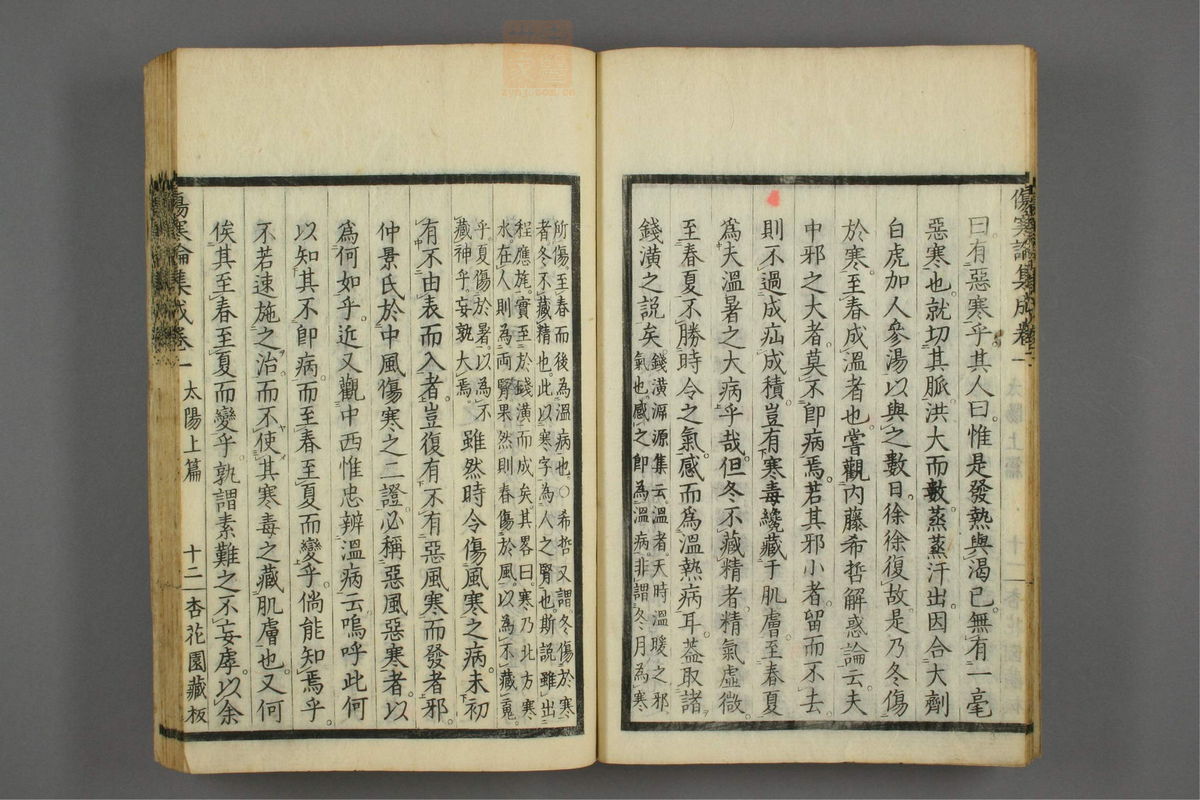 曰有惡寒乎其人曰惟是發熱與渴已無有一毫
惡寒也就切其脈洪大而數蒸蒸汗出因合大劑
白虎加人參湯以與之數日徐徐復故是乃冬傷
於寒至春成溫者也嘗觀內藤希哲解惑論云夫
中邪之大者莫不卽病焉若其邪小者留而不去
則不過成疝成積豈有寒毒纔藏于肌膚至春夏
爲夫溫暑之大病乎哉但冬不藏精者精氣虛微
至春夏不勝時令之氣感而爲溫熱病耳蓋取諸
錢潢之說矣
錢潢溯源集云溫者天時溫暖之邪
氣也感之卽為溫病非謂冬月為寒
所傷至春而後為溫病也○希哲又謂冬傷於寒
者冬不藏精也此以寒字為人之腎也斯說雖出
程應旄實至於錢潢而成矣其畧曰寒乃北方寒
水在人則為両腎果然則春傷於風以為不藏䰟
乎夏傷於暑以為不
藏神乎妄孰大焉
雖然時令傷風寒之病未初
有不由表而入者豈復有不有惡風寒而發者邪
仲景氏於中風傷寒之二證必稱惡風惡寒者以
爲何如乎近又觀中西惟忠辨溫病云嗚呼此何
以知其不卽病而至春至夏而變乎倘能知焉乎
不若速施之治而不使其寒毒之藏肌膚也又何
俟其至春至夏而變乎孰謂素難之不妄虖以余
傷寒論集成卷一 太陽上篇 十二 杏花園藏板